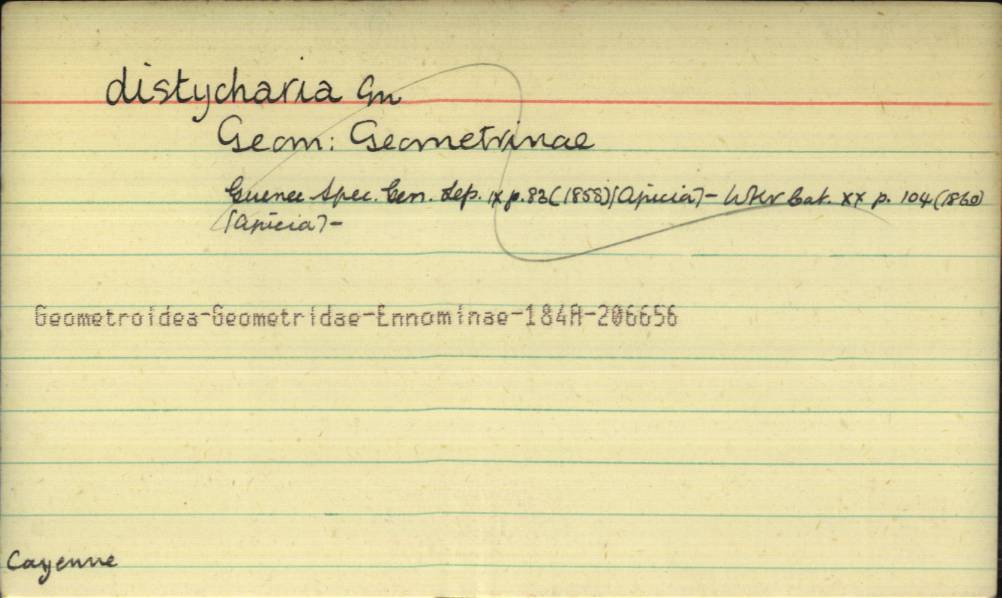 distycharia Gn
Geom: Geometrinae
Guenee Spec. Gen. Lep. ix p. 83 (1858) [Apicia] - Wkr Cat. xx p. 104 (1860)
[Apicia] -
Geometroidea-Geometridae-Ennominae-184A-206656
Cayenne